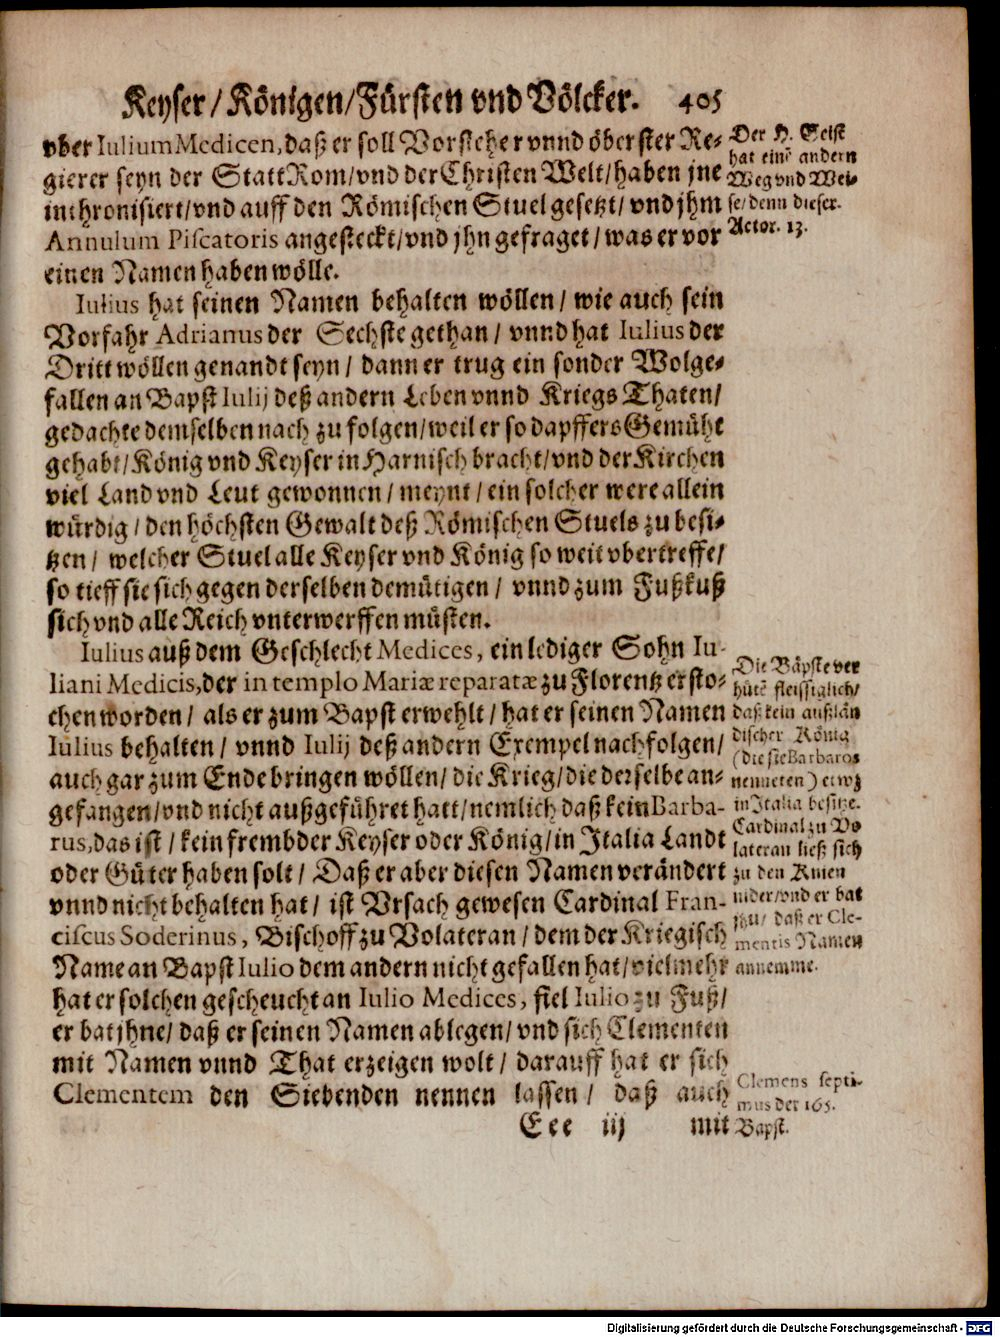 Keyser/Königen/Fürsten vnd Völcker. 405
vber Iulium Medicen, daß er soll Vorsteher vnnd öberster Re-
gierer seyn der Statt Rom/vnd der Christen Welt/haben jne
inthronisiert/vnd auff den Römischen Stuel gesetzt/vnd jhm
Annulum Piscatoris angesteckt/vnd jhn gefraget/was er vor
einen Namen haben wölle.
Der H. Geist
hat einẽ andern
Weg vnd Wei-
se/denn dieser.
Actor. 13.
Iulius hat seinen Namen behalten wöllen/wie auch sein
Vorfahr Adrianus der Sechste gethan/vnnd hat Iulius der
Dritt wöllen genandt seyn/dann er trug ein sonder Wolge-
fallen an Bapst Iulij deß andern Leben vnnd Kriegs Thaten/
gedachte demselben nach zu folgen/weil er so dapffers Gemüht
gehabt/König vnd Keyser in Harnisch bracht/vnd der Kirchen
viel Land vnd Leut gewonnen/meynt/ein solcher were allein
würdig/den höchsten Gewalt deß Römischen Stuels zu besi-
tzen/welcher Stuel alle Keyser vnd König so weit vbertreffe/
so tieff sie sich gegen derselben demütigen/vnnd zum Fußkuß
sich vnd alle Reich vnterwerffen müsten.
Iulius auß dem Geschlecht Medices, ein lediger Sohn Iu-
liani Medicis, der in templo Mariæ reparatæ zu Florentz ersto-
chen worden/als er zum Bapst erwehlt/hat er seinen Namen
Iulius behalten/vnnd Iulij deß andern Exempel nachfolgen/
auch gar zum Ende bringen wöllen/die Krieg/die derselbe an-
gefangen/vnd nicht außgeführet hatt/nemlich daß kein Barba-
rus, das ist/kein frembder Keyser oder König/in Italia Landt
oder Güter haben solt/Daß er aber diesen Namen verändert
vnnd nicht behalten hat/ist Vrsach gewesen Cardinal Fran-
ciscus Soderinus, Bischoff zu Volateran/dem der Kriegisch
Name an Bapst Iulio dem andern nicht gefallen hat/vielmehr
hat er solchen gescheucht an Iulio Medices, fiel Iulio zu Fuß/
er bat jhne/daß er seinen Namen ablegen/vnd sich Clementen
mit Namen vnnd That erzeigen wolt/darauff hat er sich
Clementem den Siebenden nennen lassen/daß auch
Die Bäpste ver
hütẽ fleissiglich/
daß kein außlän
discher König
(die sie Barbaros
nenneten) etwz
in Italia besitze.
Cardinal zu Vo
lateran ließ sich
zu den Knien
nider/vnd er bat
jhn/daß er Cle-
mentis Namen
annemme.
Clemens septi-
mus der 165.
Bapst.
Eee iij mit
Digitalisierung gefördert durch die Deutsche Forschungsgemeinschaft - DFG